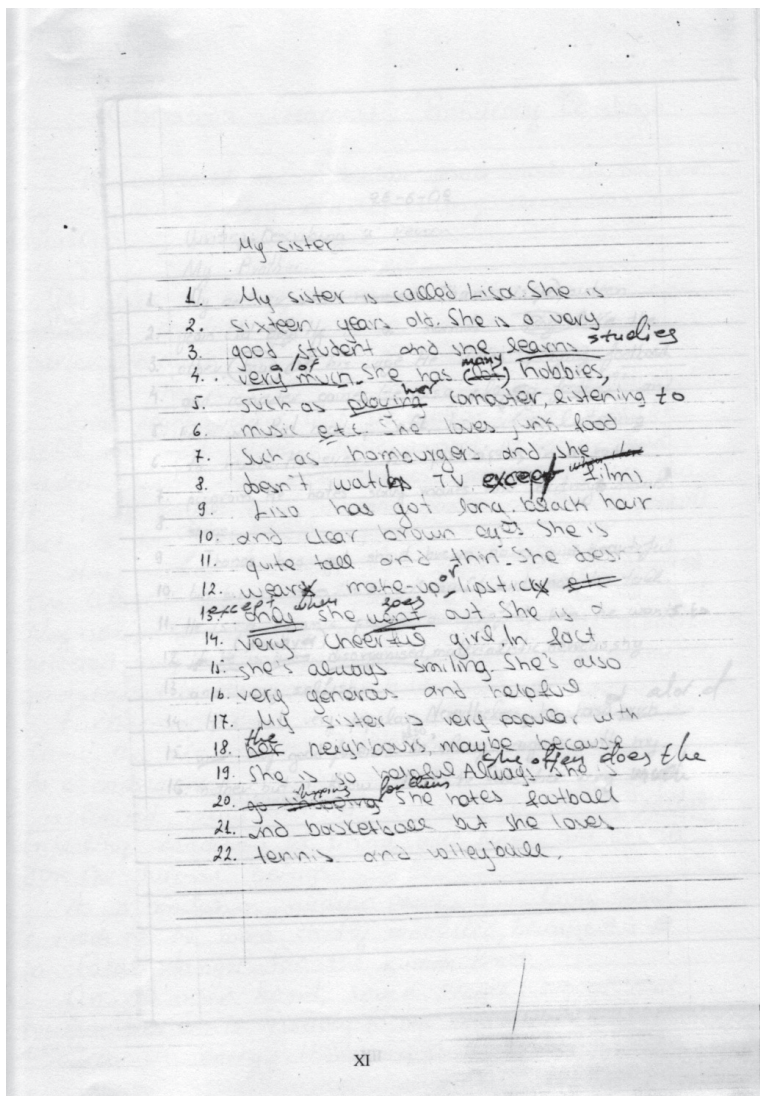 My sister
1. My sister is called Lisa. She is
2. sixteen years old. She is a very
3. good student and she learns studies
4. very much a lot. She has (lot) many hobbies,
5. such as playing her computer, listening to
6. music etc. She loves junk food
7. such as hamburgers and she
8. doesn't watch TV except films
9. Lisa has got long black hair
10. and clear brown eyes She is
11. quite tall and thin. She does
12. wears make-up or lipstick etc
13. except when only she went goes out. She is a
14. very cheerful girl. In fact
15. she's always smiling. She's also
16. very generas and helpful
17. My sister is very popular with
18. the her neighbours, maybe because
19. She is so helpful Always she she often does the
20. go shopping for them She hates football
21. and basketball but she loves
22. tennis and volleyball.
XI